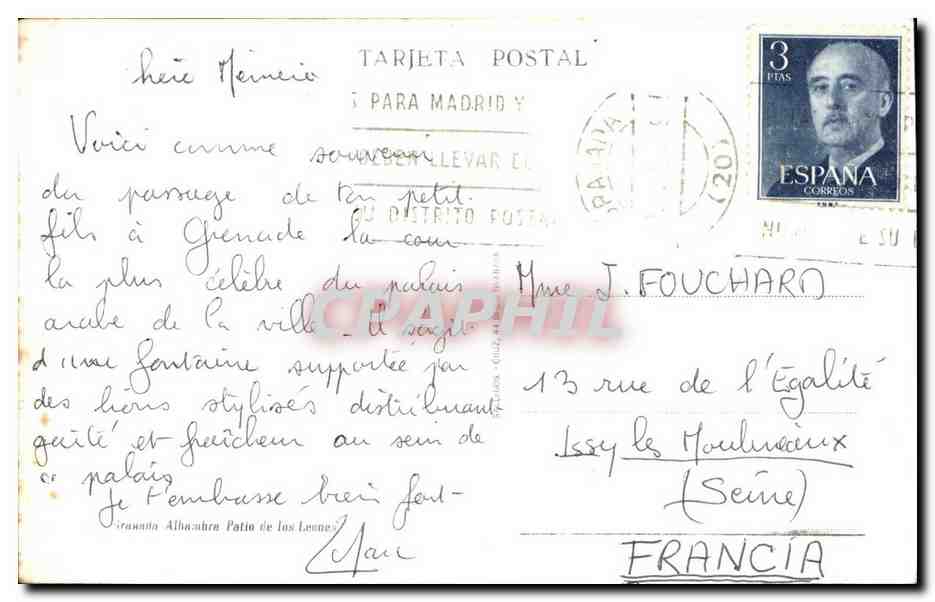 TARJETA POSTAL
Chère Mémère
Voici comme souvenir
du passage de ton petit
fils à Grenade la cour
la plus célèbre du palais
arabe de la ville. Il s'agit
d'une fontaine supportée par
des lions stylisés distribuant
gaité et fraîcheur au sein de
ce palais
Je t'embrasse bien fort
Granada Alhambra Patio de los Leones
3
PTAS
ESPAÑA
CORREOS
PARA MADRID Y
DEBEN LLEVAR EL
SU DISTRITO POSTAL
(20)
E SU
CPAPHIL
Mme J. FOUCHARD
13 rue de l'Egalité
Issy les Moulineaux
(Seine)
FRANCIA